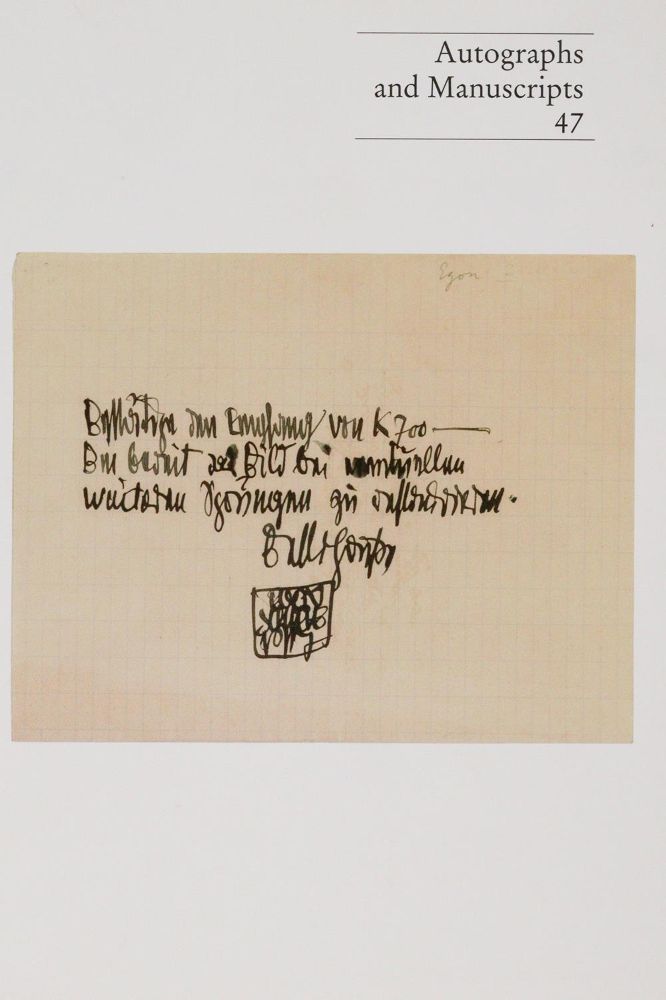 Autographs
and Manuscripts
47
Egon
Bestätige den Empfang von K 700 —
Bin bereit das Bild bei eventuellen
weiteren Sprüngen zu